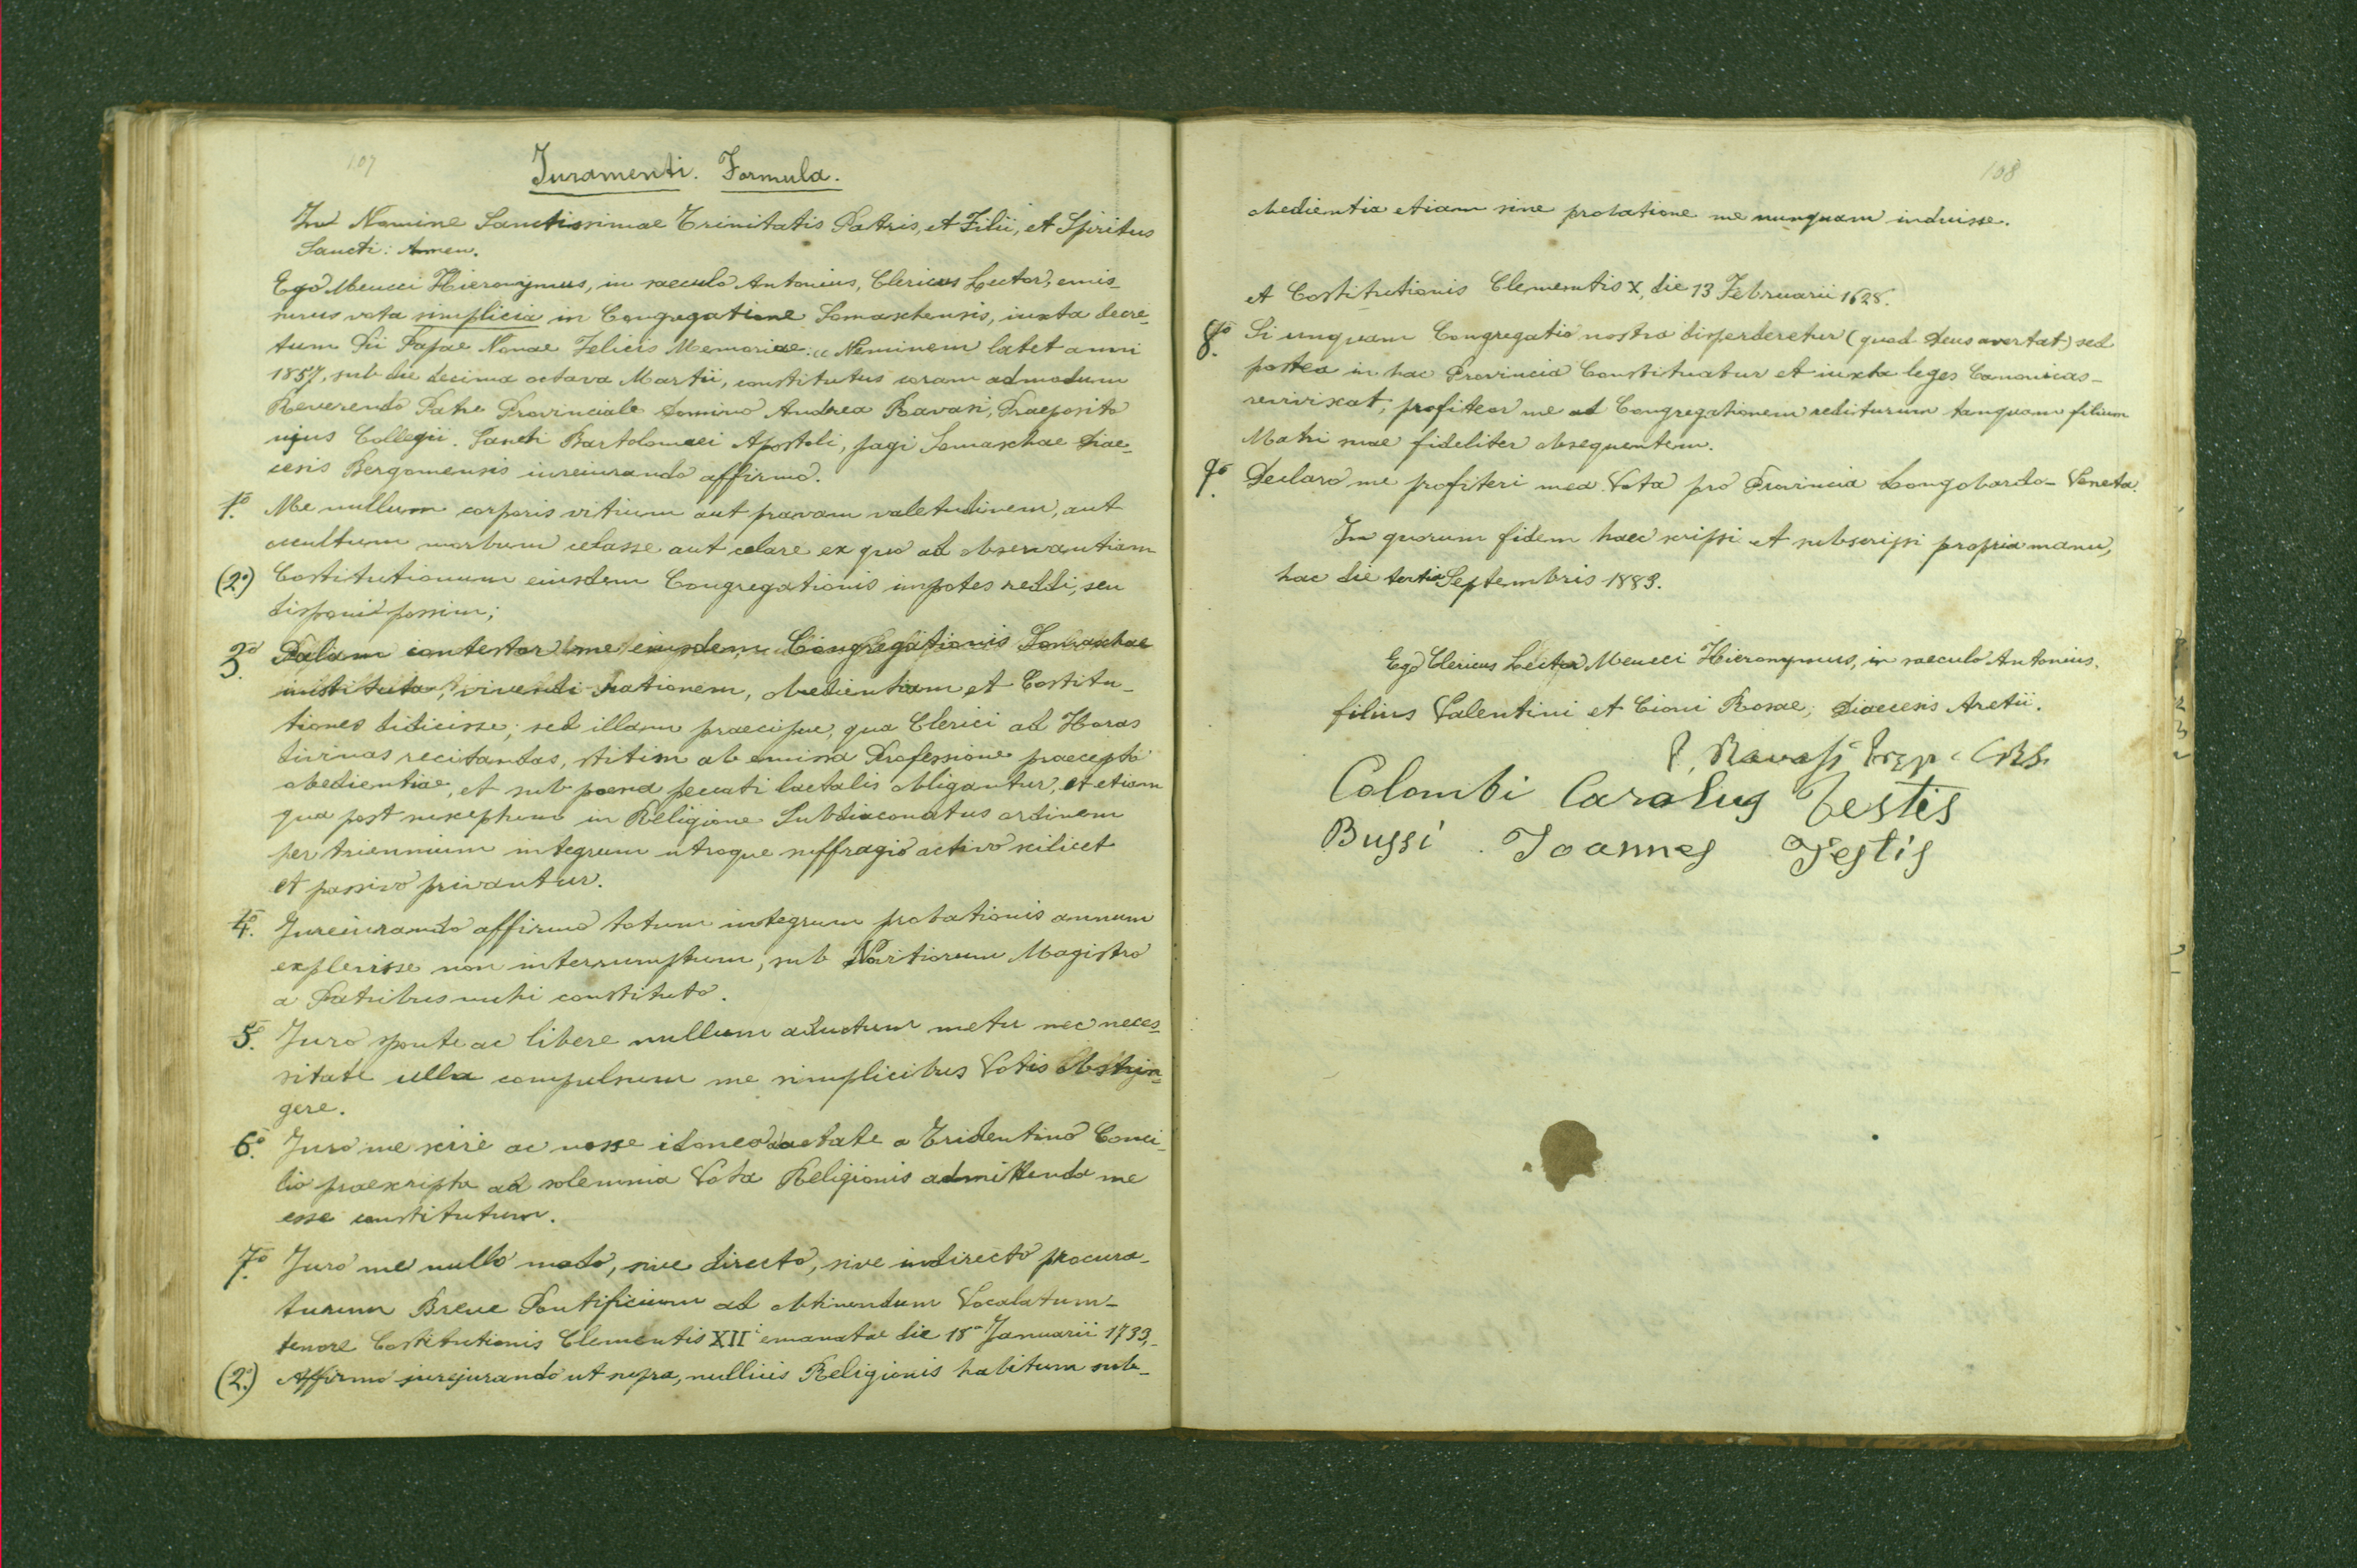 107
Juramenti. Formula.
In Nomine Sanctissimae Trinitatis Patris, et Filii, et Spiritus
Sancti: Amen.
Ego Meucci Hieronymus, in saeculo Antonius, Clericus Lector, emis-
surus vota simplicia in Congregatione Somaschensis, iuxta decre-
tum Pii Papae Nonae Felicis Memoriae: " Neminem latet anni
1857, sub die decima octava Martii, constitutus coram admodum
Reverendo Patre Provinciale Domino Andrea Ravasi, Praeposito
ujus Collegii. Sancti Bartolomaei Apostoli, pagi Somaschae Diae-
cesis Bergomensis iureiurando affirmo.
1.º Me nullum corporis vitium aut pravam valetudinem, aut
occultum morbum celasse aut celare ex quo ad observantiam
(2.º) Costitutionum eiusdem Congregationis impotes reddi, seu
disponi possim;
3.º Palam contestor me eiusdem Congregationis Somaschae
instituta, vivendi rationem, obedientiam et Costitu-
tiones didicisse; sed illam praecipue, qua Clerici ad Horas
divinas recitandas, statim ab emissa Professione praecepto
obedientiae, et sub poena peccati laetalis obligantur, et etiam
qua post susceptum in Religione Subdiaconatus ordinem
per triennium integrum utroque suffragio activo scilicet
et passivo privantur.
4.º Jureiurando affirmo totum integrum probationis annum
explevisse non interrumptum, sub Novitiorum Magistro
a Patribus mihi constituto.
5.º Juro sponte ac libere nullum aductum metu nec neces-
sitate ulla compulsum me simplicibus Votis Obstrin-
gere.
6.º Juro me scire ac nosse idonea aetate a Tridentino Conci-
lio praescripta ad solemnia Vota Religionis admittenda me
esse constitutum.
7.º Juro me nullo modo, sive directo, sive indirecto procura-
turum Breve Pontificium ad obtinendum Vocalatum-
tenore Costitutionis Clementis XII emanatae die 18ª Januarii 1733,-
(2.º) Affirmo jurejurando ut supra, nullius Religionis habitum sub-
108
obedientia etiam sine probatione me nunquam induisse.
et Costitutionis Clementis X, die 13 Februarii 1628.
8.º Si unquam Congregatio nostra disperderetur (quod Deus avertat) sed
postea in hac Provincia Constituatur et iuxta leges Canonicas-
reviviscat, profiteor me ad Congregationem rediturum tanquam filium
Matri suae fideliter obsequentem.
9.º Declaro me profiteri mea Vota pro Provincia Longobardo-Veneta.
In quorum fidem haec scripsi et subscripsi propria manu,
hac die tertia Septembris 1883.
Ego Clericus Lector Meucci Hieronymus, in saeculo Antonius,
filius Valentini et Cioni Rosae; Diaecesis Aretii.
P. Ravasi Prep. CRS.
Colombi Carolus Testis
Bussi Joannes Testis